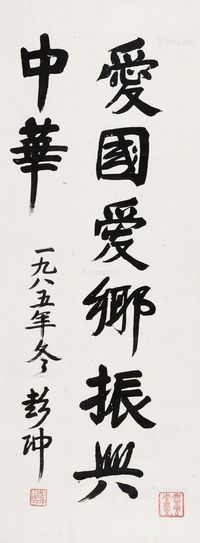 愛國愛鄉振興
中華
一九八五年冬 彭冲